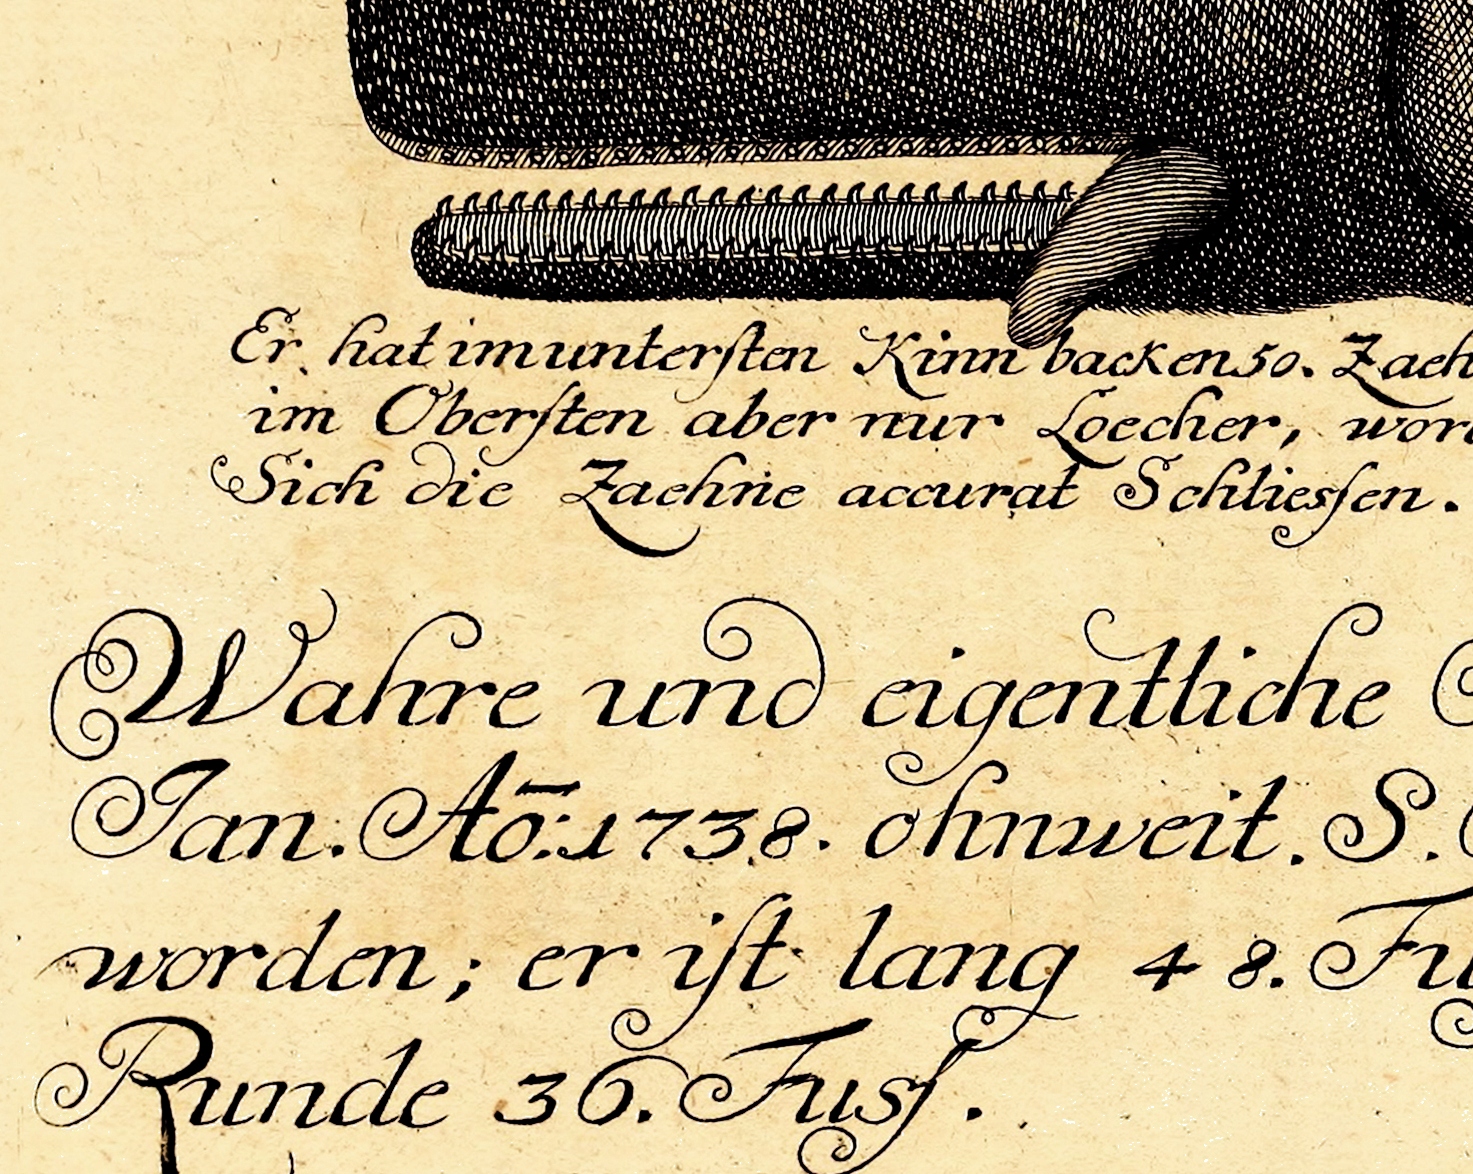 Er hat im untersten Kinn backen 50. Zaeh
im Obersten aber nur Loecher, wor
Sich die Zaehne accurat Schliessen.
Wahre und eigentliche
Jan. Aō: 1738. ohnweit. S.
worden; er ist lang 48. Fu
Runde 36. Fuss.